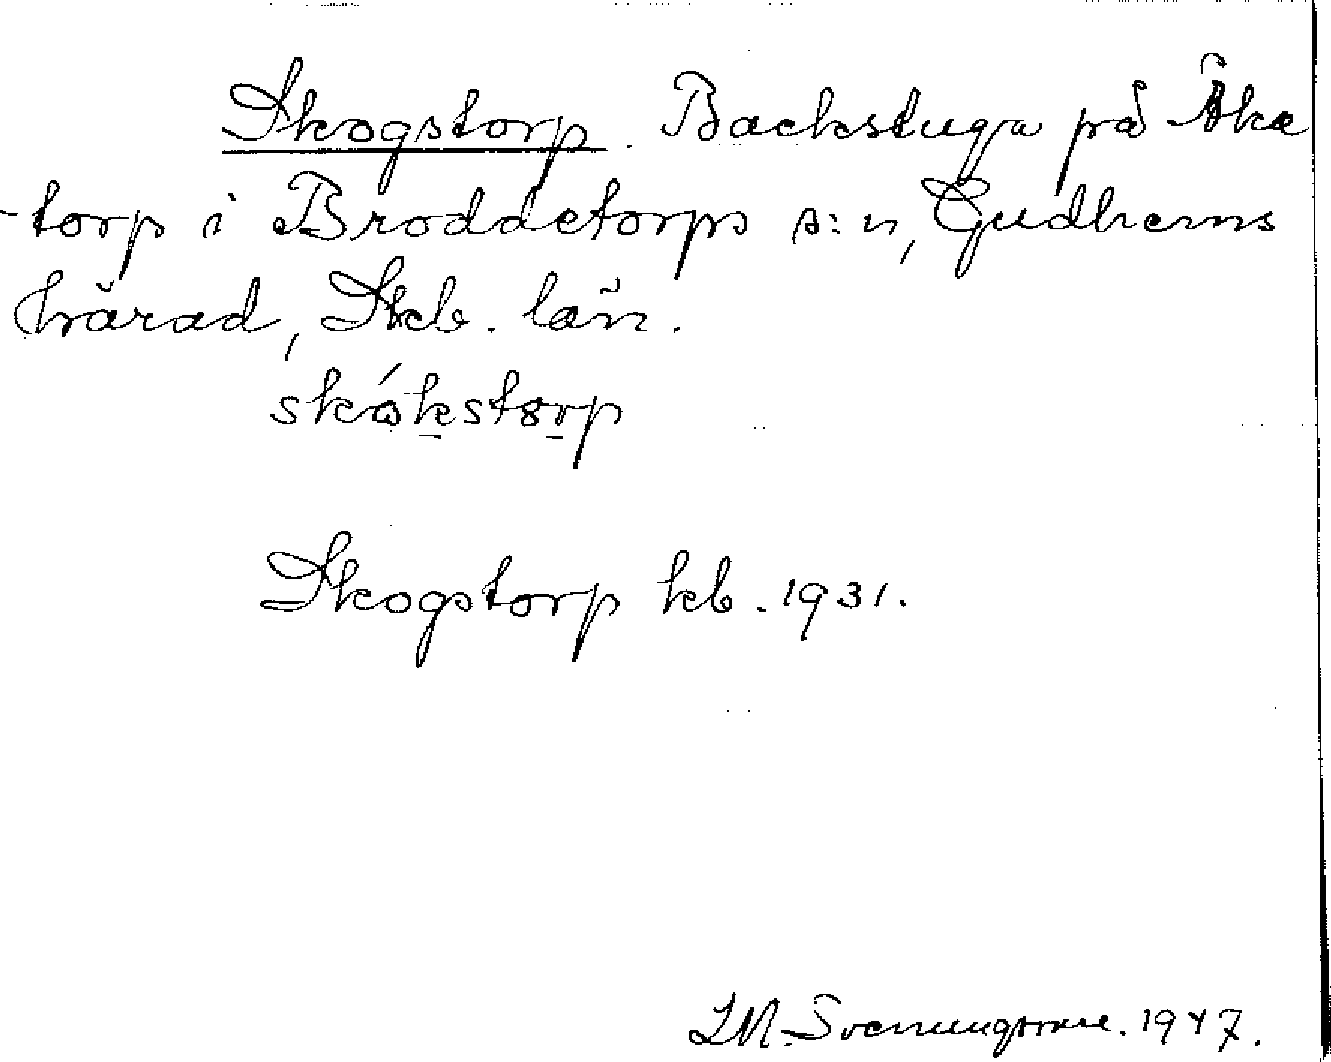 Skogstorp. Backstuga på Åka
-torp i Broddetorps s:n, Gudhems
härad, Skb. län.
skókstorp
Skogstorp kb. 1931.
I.M. Svenungsson. 1947.